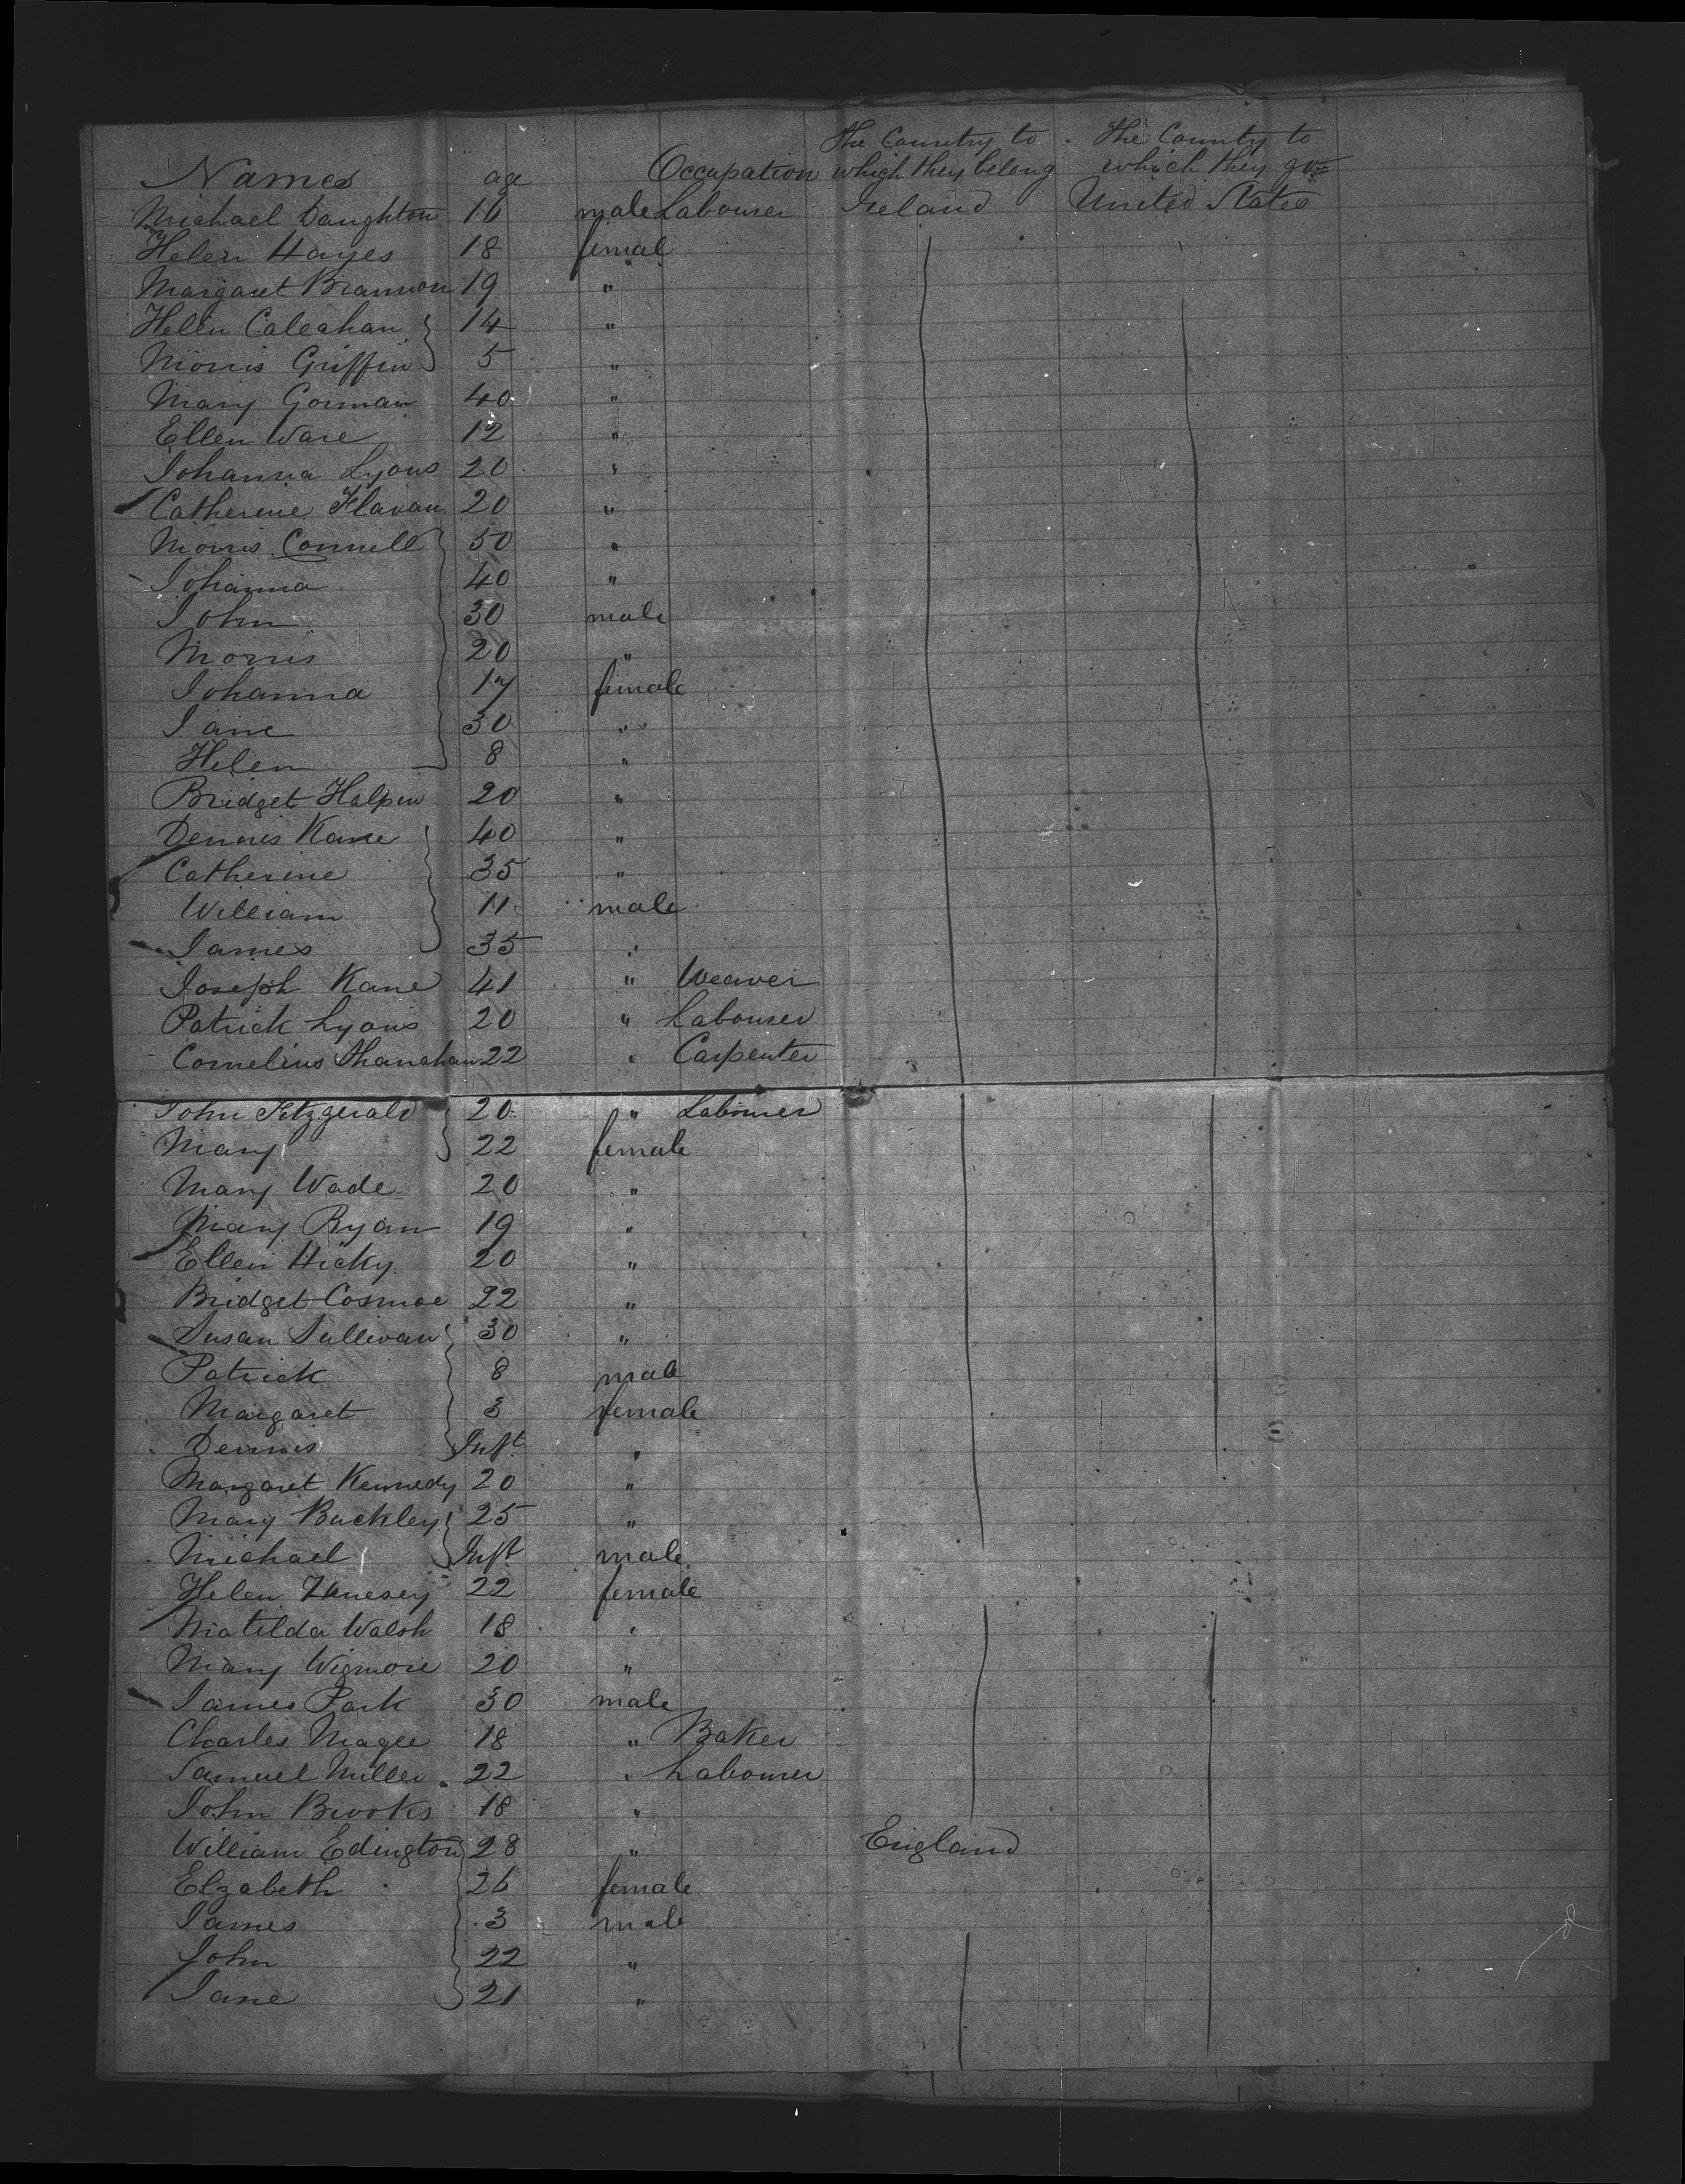 The Country to The Country to
Names age Occupation which they belong which they go
Michael Daughton 16 male Labourer Ireland United States
Helen Hayes 18 femal
Margaret Brannon 19 "
Helen Caleahan 14 "
Morris Griffin 5 "
Mary Gorman 40 "
Ellen Ware 12 "
Johanna Lyons 20 "
Catherine Flavan 20 "
Morris Connell 50 "
Johanna 40 "
John 30 male
Morris 20 "
Johanna 17 female
Jane 30 "
Helen 8 "
Bridget Halpin 20 "
Dennis Kane 40 "
Catherine 35 "
William 11 male
James 35 "
Joseph Kane 41 " Weaver
Patrick Lyons 20 " Labourer
Cornelius Shanahan 22 " Carpenter
John Fitzgerald 20 " Labourer
Mary 22 female
Mary Wade 20 "
Mary Ryan 19 "
Ellen Hicky 20 "
Bridget 22 "
Susan Sullivan 30 "
Patrick 8 male
Margaret 3 female
Dennis Inft "
Margaret Kennedy 20 "
Mary Buckley 25 "
Michael Inft male
Helen 22 female
Matilda Walsh 18 "
Mary Wigmore 20 "
James Park 30 male
Charles Magee 18 " Baker
Samuel Miller 22 " Labourer
John Brooks 18 "
William Edington 28 " England
Elzabeth 26 female
James 3 male
John 22 "
Jane 21 "